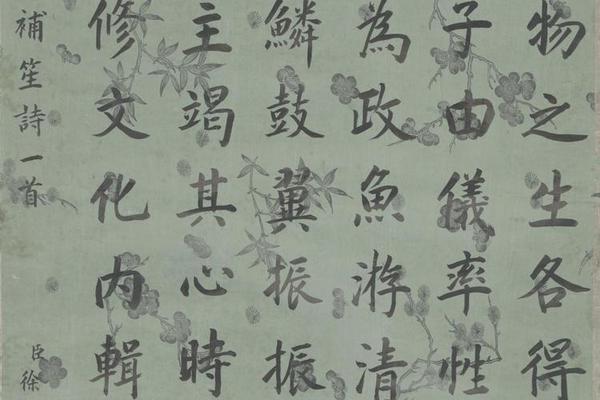 物之生各得
子由儀率性
為政魚游清
鱗鼓翼振振
主竭其心時
修文化內輯
補笙詩一首
臣徐